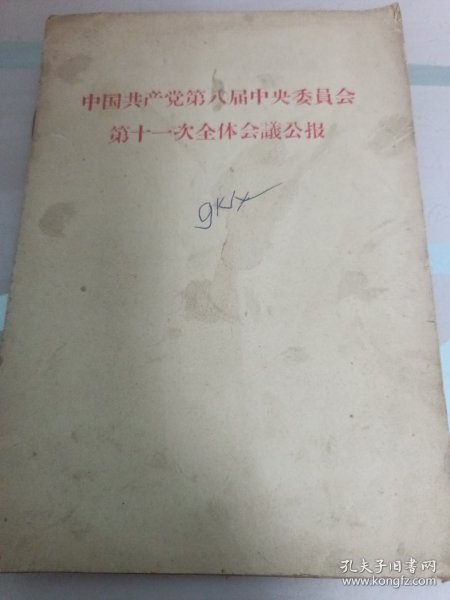 中国共产党第八届中央委員会
第十一次全体会議公报
孔夫子旧书网
www.kongfz.com